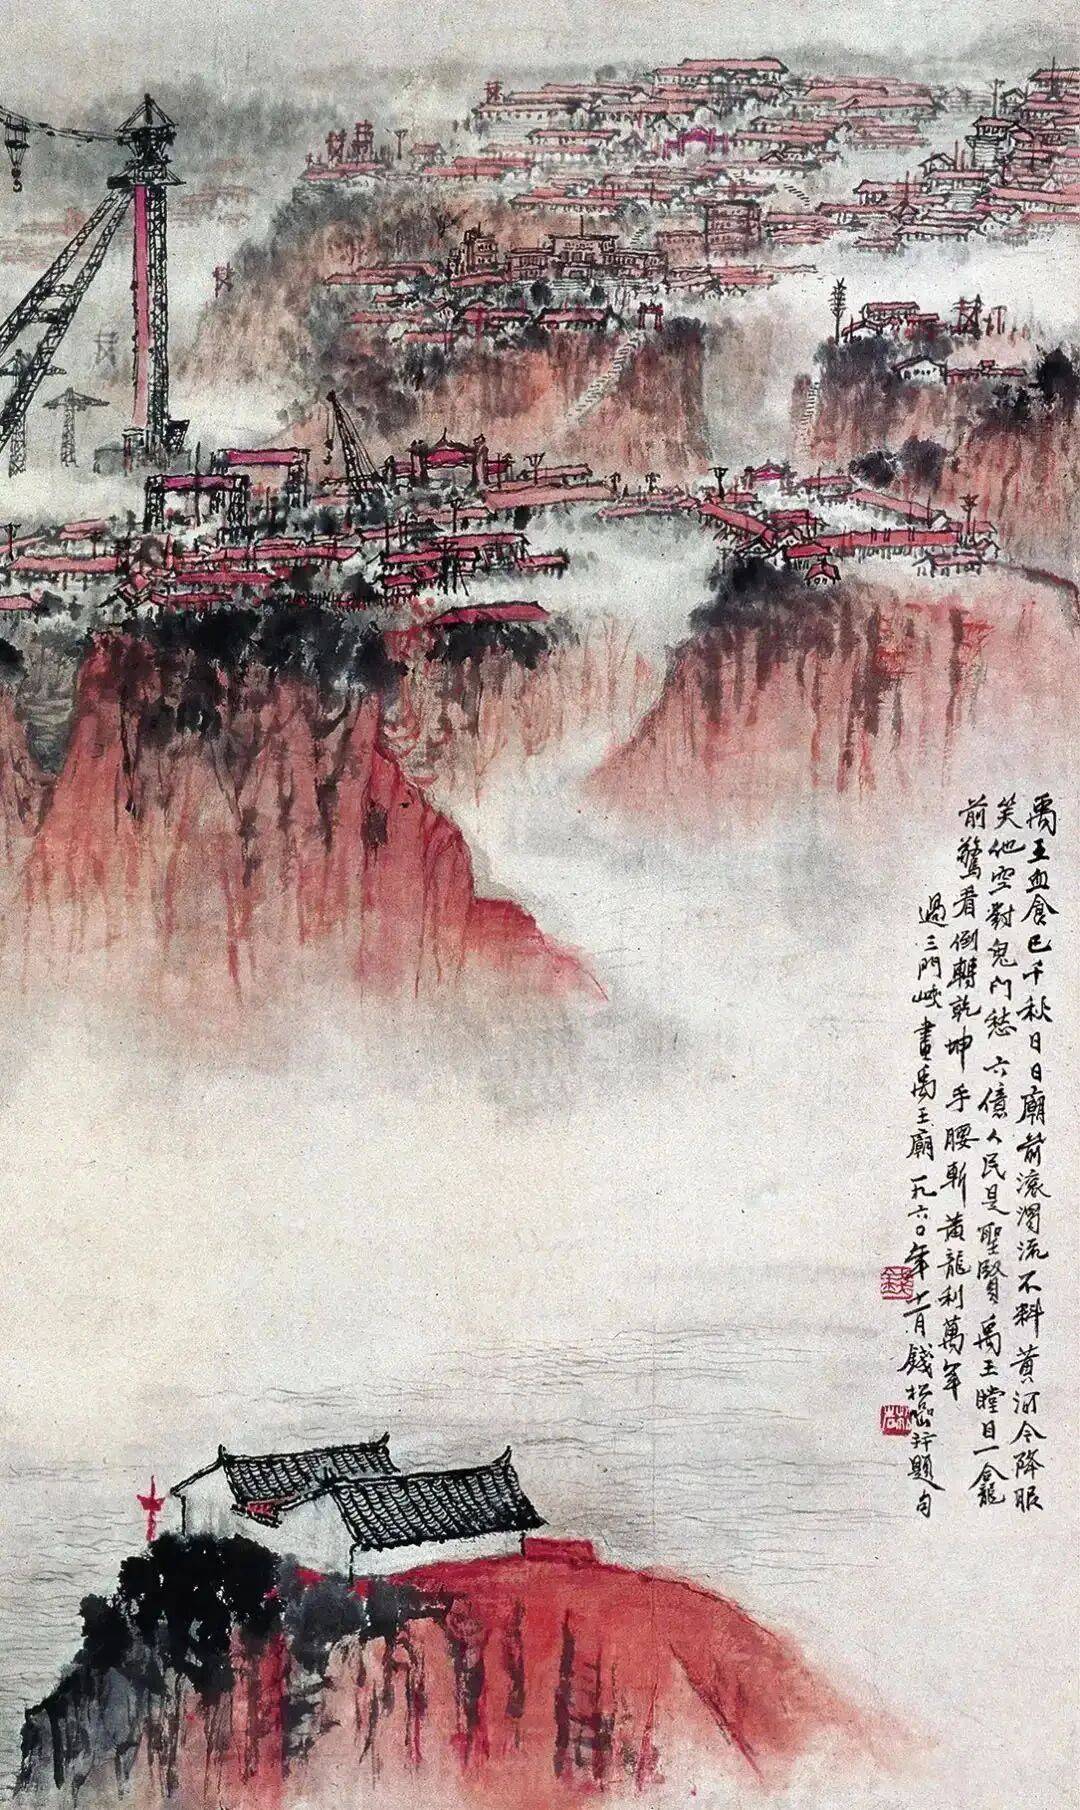 禹王血食已千秋日日廟前滾濁流不料黃河今降服
笑他空對鬼門愁六億人民是聖賢禹王瞠目一合龍
前驚看倒轉乾坤手腰斬黃龍利萬年
過三門峽畫禹王廟一九六〇年十一月錢松喦并題句
錢